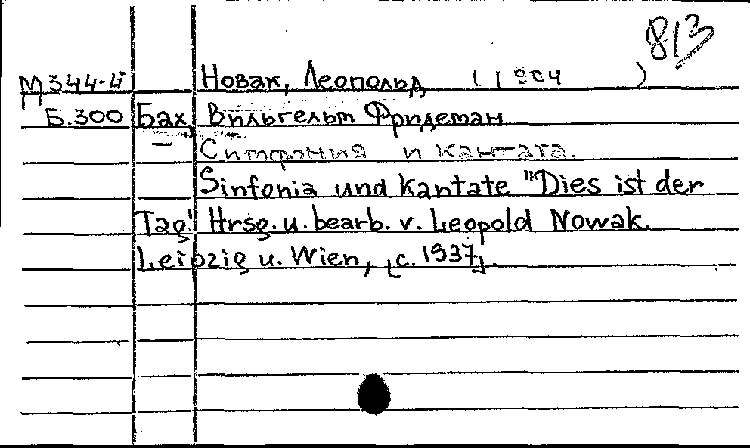 813
М344-4 Новак, Леопольд (1904 )
Б.300 Бах, Вильгельм Фридеман
— Симфония и кантата.
Sinfonia und Kantate "Dies ist der
Tag" Hrsg. u. bearb. v. Leopold Nowak.
Leipzig u. Wien, [c. 1937].